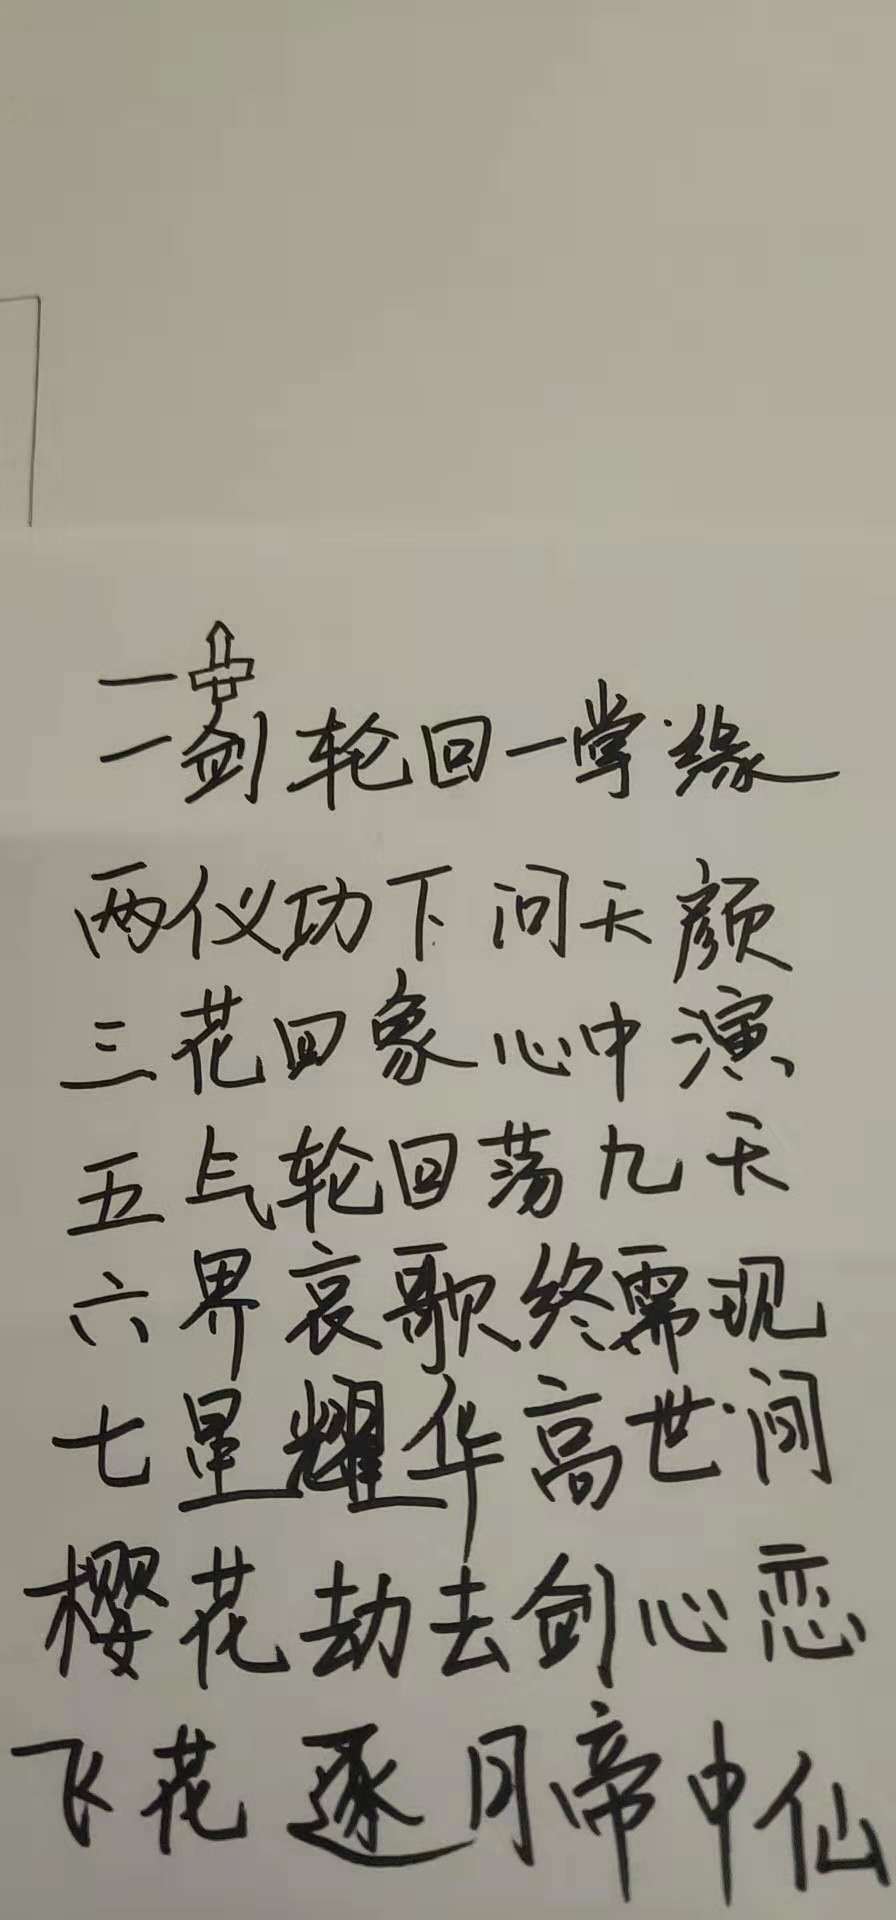 一
一剑轮回一掌缘
两仪功下问天颜
三花四象心中演
五气轮回荡九天
六界哀歌终需现
七星耀华高世间
樱花劫去剑心恋
飞花逐月帝中仙